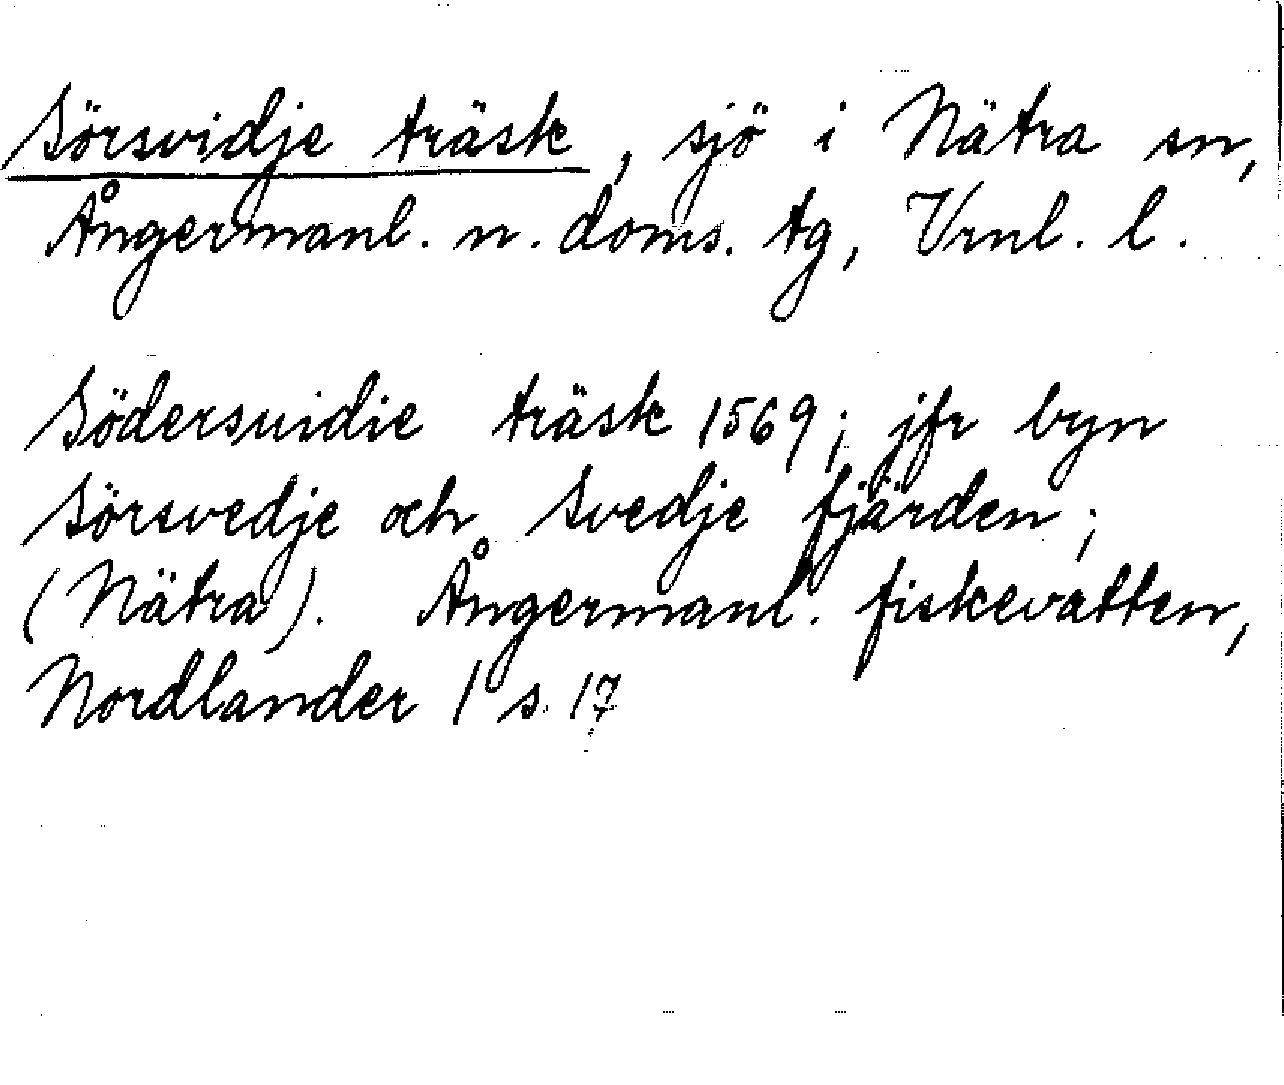 Sörsvidje träsk, sjö i Nätra sn,
Ångermanl. n. doms. tg, Vrnl. l.
Södersuidie träsk 1569; jfr byn
Sörsvedje och Svedje fjärden;
(Nätra). Ångermanl. fiskevatten,
Nordlander 1 s. 17